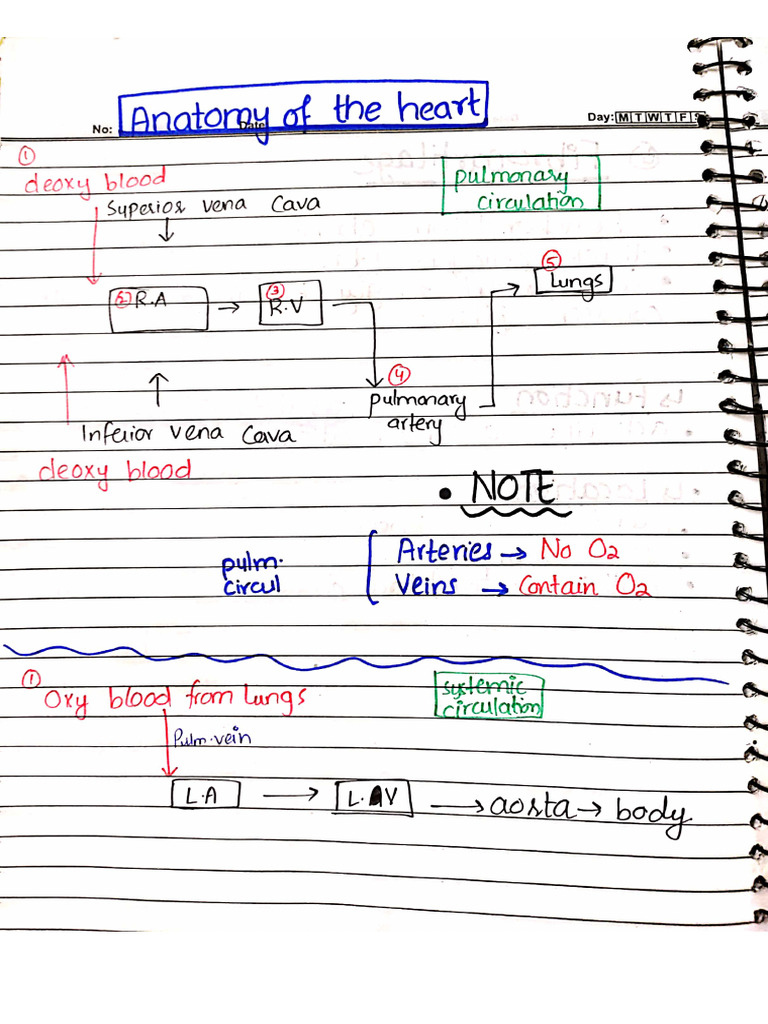 Anatomy of the heart
No:
Date
Day: M T W T F S
①
deoxy blood
pulmonary
circulation
Superior vena Cava
② R.A
③
R.V
⑤
Lungs
④
pulmonary
artery
Inferior vena Cava
deoxy blood
• NOTE
pulm.
circul
Arteries → No O2
Veins → Contain O2
①
Oxy blood from lungs
systemic
circulation
Pulm.vein
L.A → L.V → aosta → body